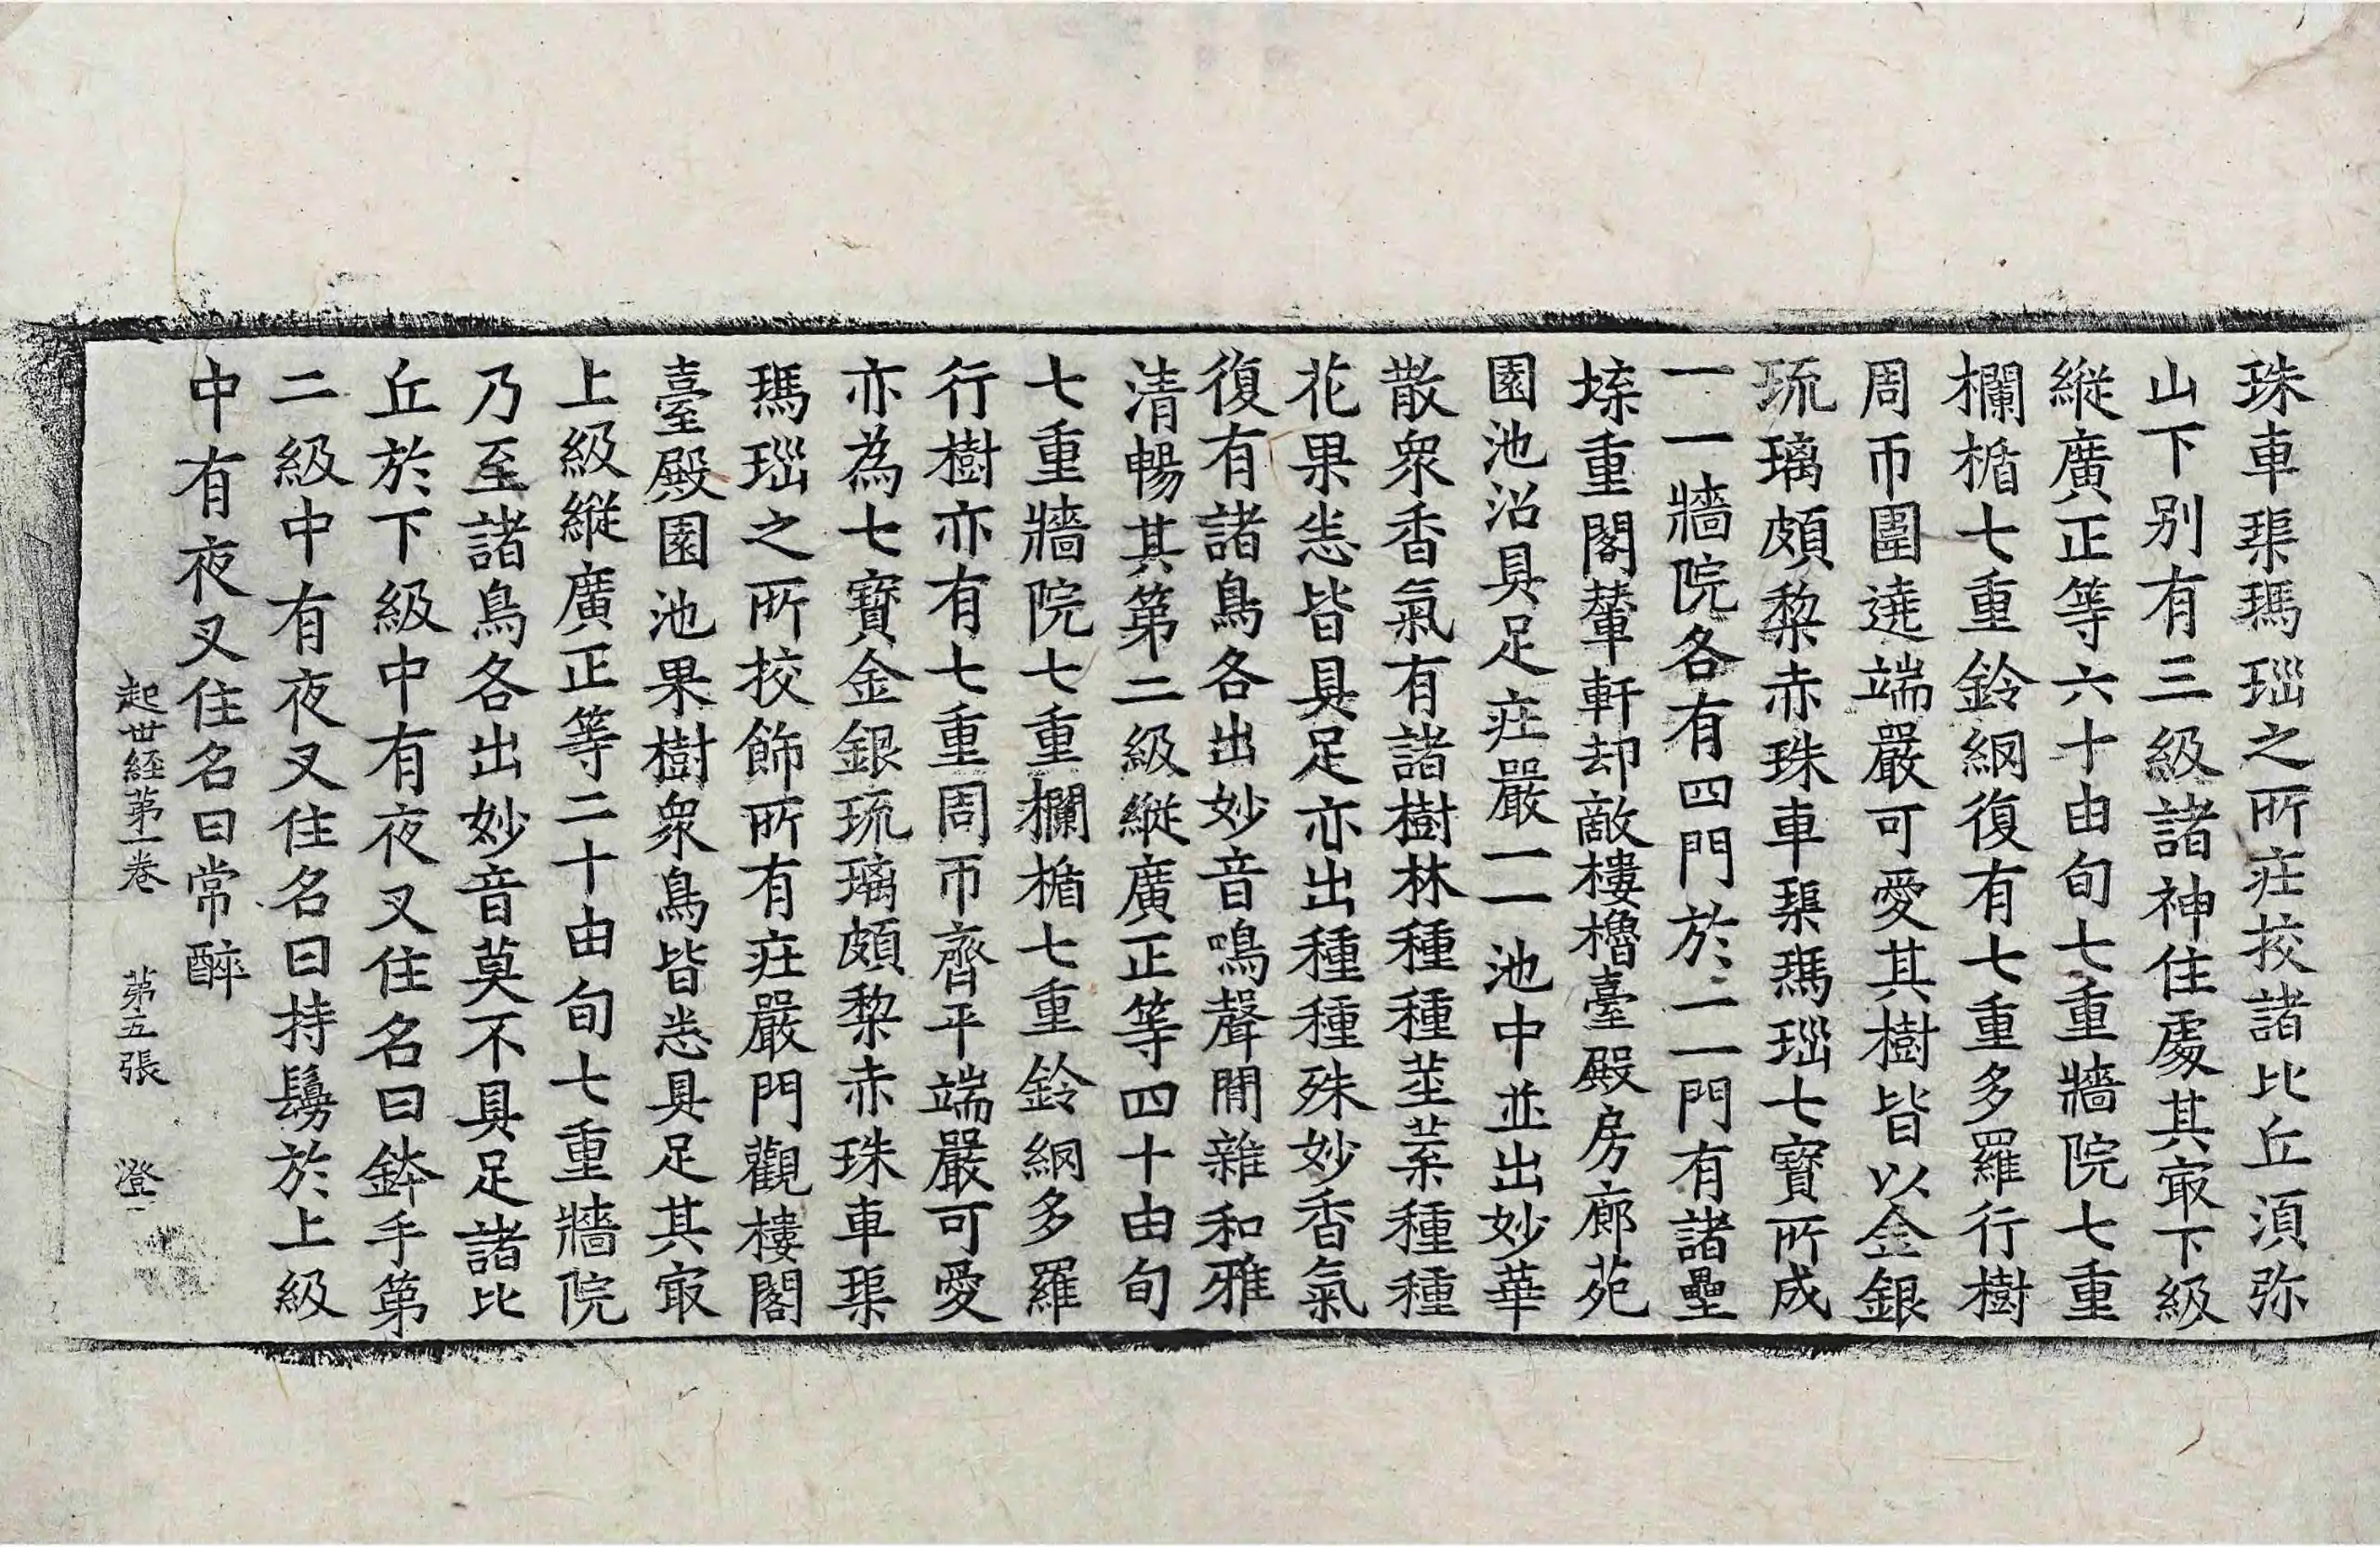 珠車𤦲瑪瑙之所莊挍諸比丘須弥
山下別有三級諸神住處其冣下級
縱廣正等六十由旬七重牆院七重
欄楯七重鈴網復有七重多羅行樹
周帀圍遶端嚴可愛其樹皆以金銀
琉璃頗棃赤珠車𤦲瑪瑙七寶所成
一一牆院各有四門於一一門有諸壘
垜重閣輦軒却敵樓櫓臺殿房廊苑
園池沼具足莊嚴一一池中並出妙華
散衆香氣有諸樹林種種莖葉種種
花果悉皆具足亦出種種殊妙香氣
復有諸鳥各出妙音鳴聲閒雜和雅
清暢其第二級縱廣正等四十由旬
七重牆院七重欄楯七重鈴網多羅
行樹亦有七重周帀齊平端嚴可愛
亦為七寶金銀琉璃頗棃赤珠車𤦲
瑪瑙之所挍飾所有莊嚴門觀樓閣
臺殿園池果樹衆鳥皆悉具足其冣
上級縱廣正等二十由旬七重牆院
乃至諸鳥各出妙音莫不具足諸比
丘於下級中有夜叉住名曰鉢手第
二級中有夜叉住名曰持鬘於上級
中有夜叉住名曰常醉
起世經第一卷 第五張 澄